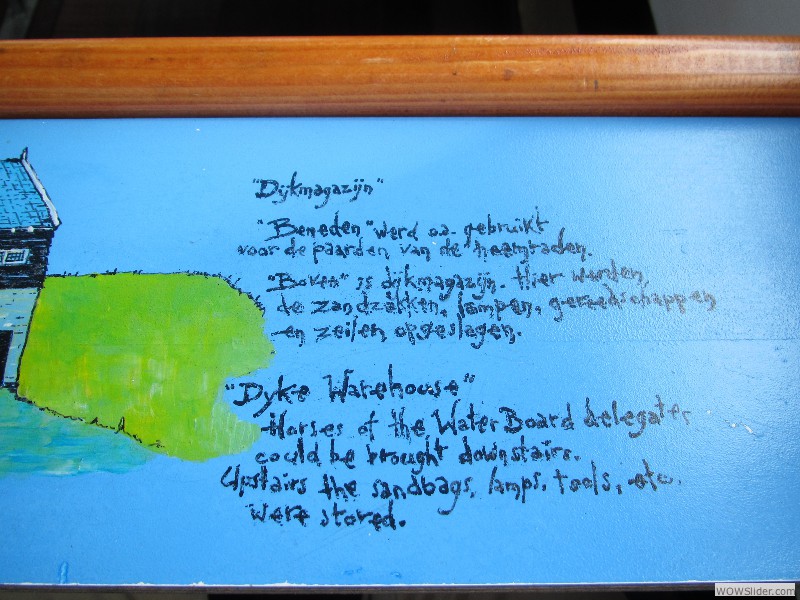 "Dijkmagazijn"
"Beneden" werd o.a. gebruikt
voor de paarden van de heemraden.
"Boven" is dijkmagazijn. Hier worden
de zandzakken, lampen, gereedschappen
en zeilen opgeslagen.
"Dyke Warehouse"
Horses of the Water Board delegates
could be brought downstairs.
Upstairs the sandbags, lamps, tools, etc.
were stored.
WOWSlider.com